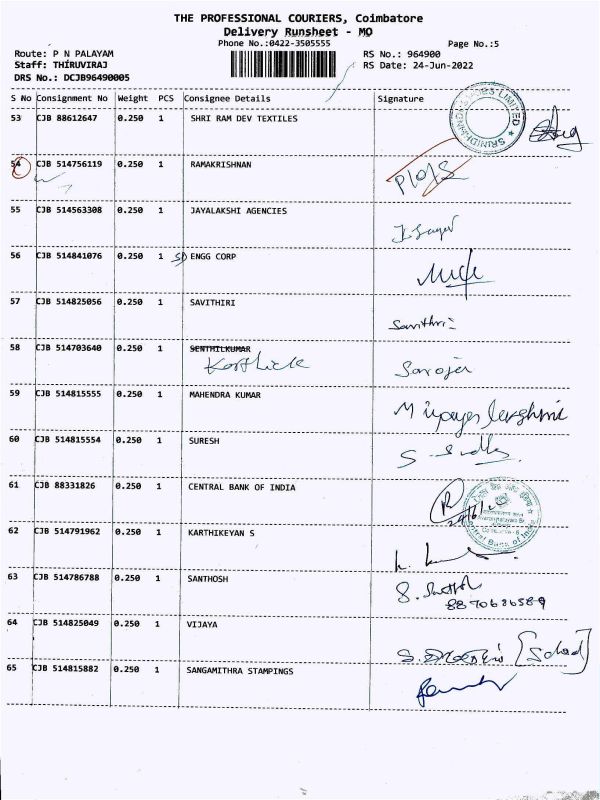 THE PROFESSIONAL COURIERS, Coimbatore
Delivery Runsheet - MO
Phone No.:0422-3505555
Page No.:5
Route: P N PALAYAM
RS No.: 964900
Staff: THIRUVIRAJ
RS Date: 24-Jun-2022
DRS No.: DCJB96490005
S No Consignment No Weight PCS Consignee Details Signature
53 CJB 88612647 0.250 1 SHRI RAM DEV TEXTILES
54 CJB 514756119 0.250 1 RAMAKRISHNAN
55 CJB 514563308 0.250 1 JAYALAKSHI AGENCIES
56 CJB 514841076 0.250 1 ENGG CORP
57 CJB 514825056 0.250 1 SAVITHIRI
Savithri
58 CJB 514703640 0.250 1 SENTHILKUMAR
Karthick Saroja
59 CJB 514815555 0.250 1 MAHENDRA KUMAR
60 CJB 514815554 0.250 1 SURESH
61 CJB 88331826 0.250 1 CENTRAL BANK OF INDIA
62 CJB 514791962 0.250 1 KARTHIKEYAN S
63 CJB 514786788 0.250 1 SANTHOSH
64 CJB 514825049 0.250 1 VIJAYA
65 CJB 514815882 0.250 1 SANGAMITHRA STAMPINGS